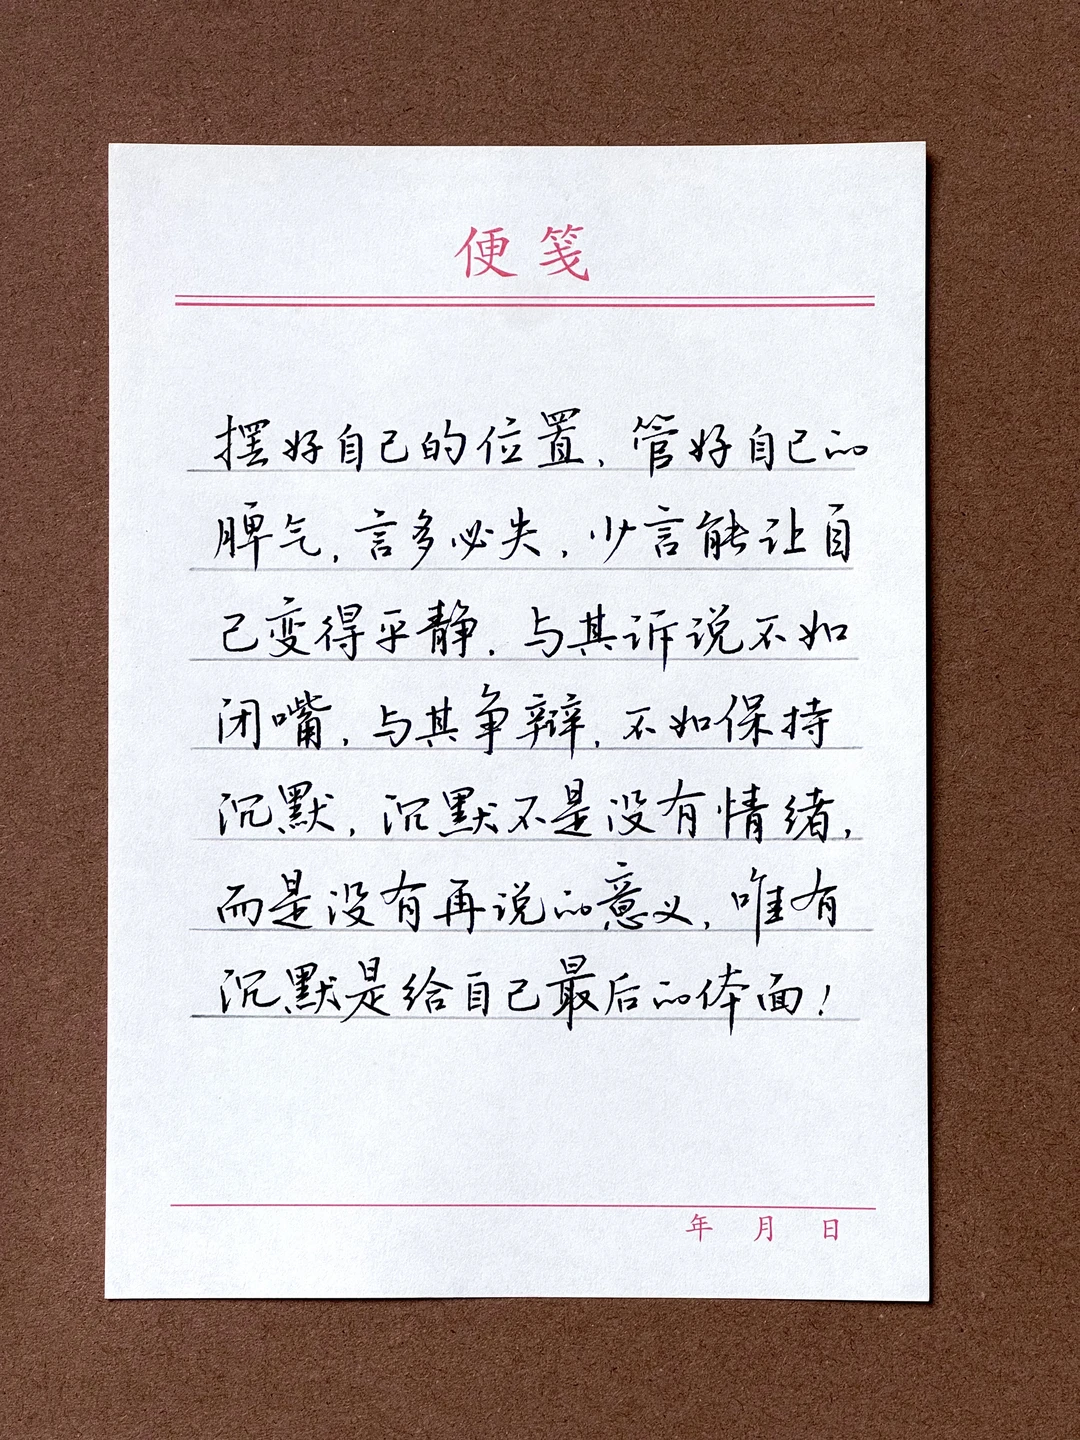 便笺
摆好自己的位置，管好自己的
脾气，言多必失，少言能让自
己变得平静．与其诉说不如
闭嘴，与其争辩，不如保持
沉默，沉默不是没有情绪，
而是没有再说的意义，唯有
沉默是给自己最后的体面！
年 月 日